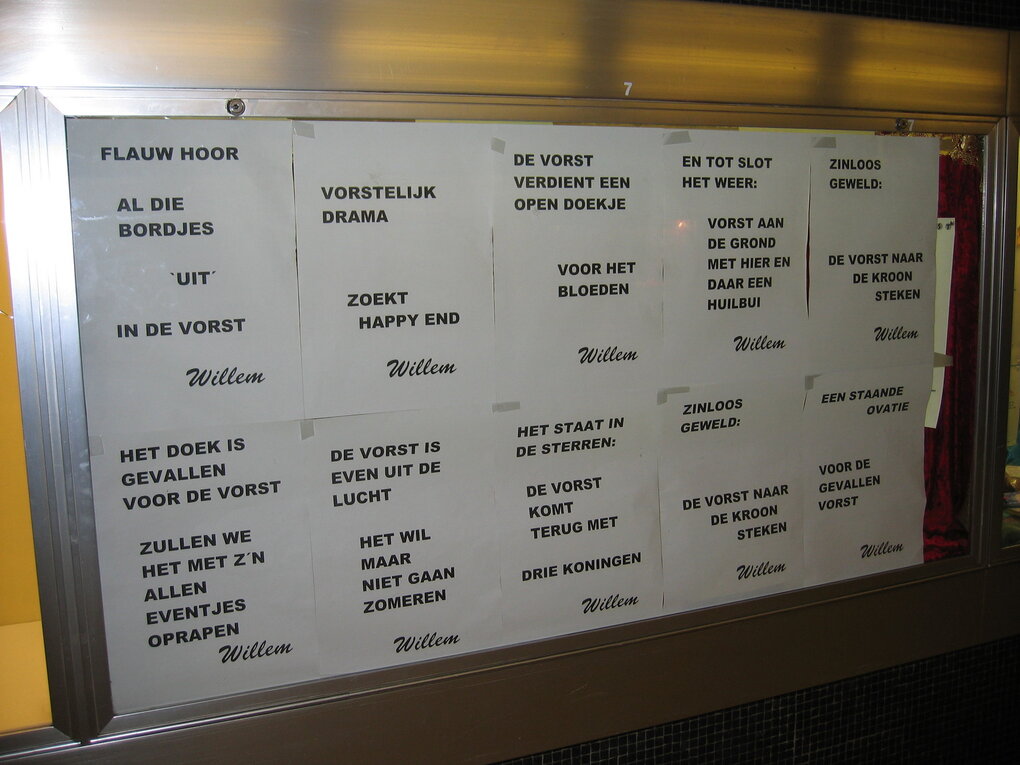 7
FLAUW HOOR
AL DIE
BORDJES
`UIT´
IN DE VORST
Willem
VORSTELIJK
DRAMA
ZOEKT
HAPPY END
Willem
DE VORST
VERDIENT EEN
OPEN DOEKJE
VOOR HET
BLOEDEN
Willem
EN TOT SLOT
HET WEER:
VORST AAN
DE GROND
MET HIER EN
DAAR EEN
HUILBUI
Willem
ZINLOOS
GEWELD:
DE VORST NAAR
DE KROON
STEKEN
Willem
HET DOEK IS
GEVALLEN
VOOR DE VORST
ZULLEN WE
HET MET Z´N
ALLEN
EVENTJES
OPRAPEN
Willem
DE VORST IS
EVEN UIT DE
LUCHT
HET WIL
MAAR
NIET GAAN
ZOMEREN
Willem
HET STAAT IN
DE STERREN:
DE VORST
KOMT
TERUG MET
DRIE KONINGEN
Willem
ZINLOOS
GEWELD:
DE VORST NAAR
DE KROON
STEKEN
Willem
EEN STAANDE
OVATIE
VOOR DE
GEVALLEN
VORST
Willem